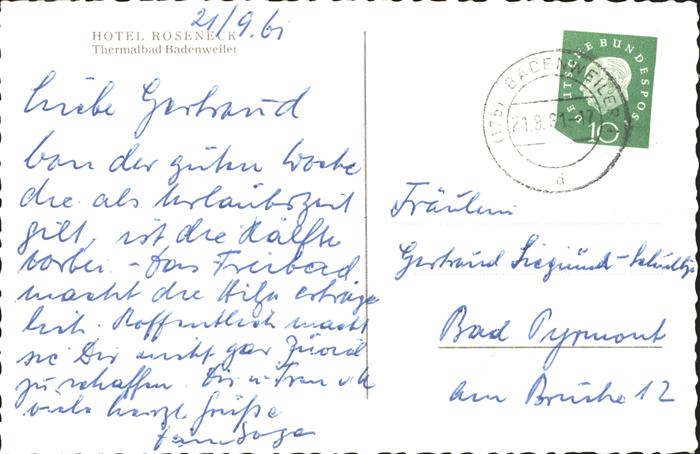 21/9.61
HOTEL ROSENECK
Thermalbad Badenweiler
Liebe Gertraud
von der guten Woche
die als Urlaubszeit
gilt, ist die Hälfte
vorbei - Das Freibad
macht die Hitze erträg
lich. Hoffentlich macht
sie Dir nicht gar zuviel
zu schaffen. Dir u. Frau
viele herzl. Grüße
DEUTSCHE BUNDESPOST
10
(17b) BADENWEILER
21.9.61-17
d
Fräulein
Gertraud Siegmund-
Bad Pyrmont
am Bruche 12